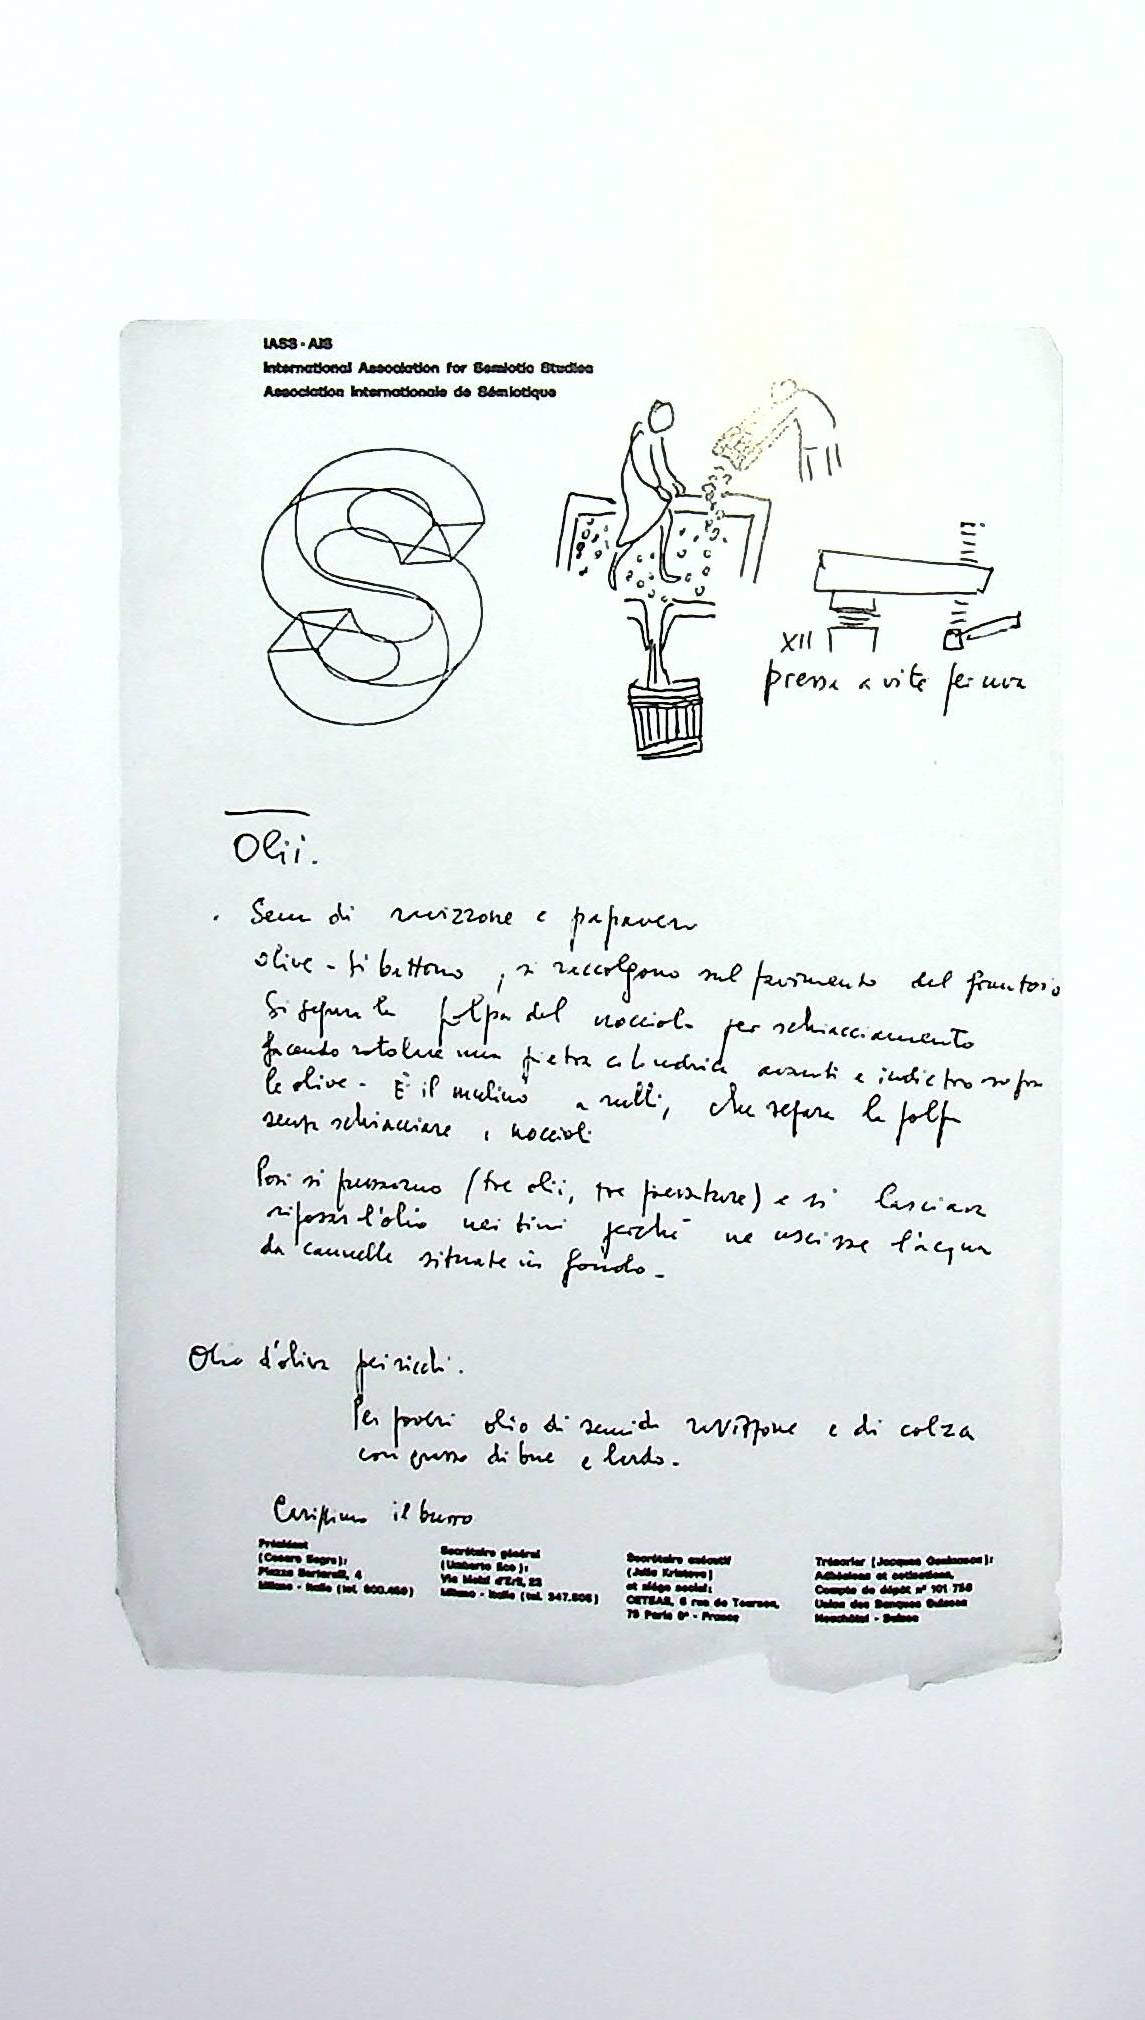 IASS-AIS
International Association for Semiotic Studies
Association Internationale de Sémiotique
XII
pressa a vite per uva
Olii.
. Semi di ravizzone e papavero
olive - Si battono, si raccolgono sul pavimento del frantoio
Si separa la polpa dal nocciolo per schiacciamento
facendo rotolare una pietra cilindrica avanti e indietro sopra
le olive - È il mulino a rulli, che separa la polpa
senza schiacciare i noccioli
Poi si pressano (tre olii, tre pressature) e si lasciava
riposar l'olio nei tini perché ne uscisse l'acqua
da cannelle situate in fondo -
Olio d'oliva per ricchi.
Per poveri olio di semi di ravizzone e di colza
con grasso di bue e lardo -
Carissimo il burro
Président
(Cesare Segre):
4
Milano - Italie (tel.
Secrétaire général
(Umberto Eco):
Via Melzi d'Eril, 23
Milano - Italie (tel. 347.505)
Secrétaire exécutif
(Julia Kristeva)
et siège social:
6 rue de Tournon,
75 Paris 6e - France
Trésorier (Jacques Geninasca):
Adhésions et cotisations,
Compte de dépôt n° 101 756
Union des Banques Suisses
Neuchâtel - Suisse